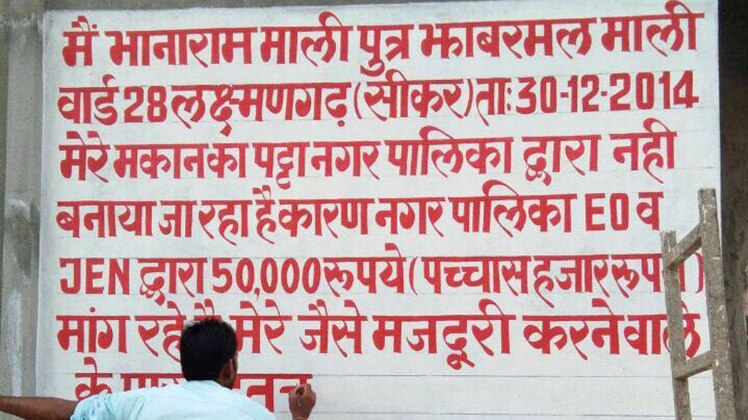 मैं भानाराम माली पुत्र झाबरमल माली
वार्ड 28 लक्ष्मणगढ़ (सीकर) ताः 30-12-2014
मेरे मकान का पट्टा नगर पालिका द्वारा नही
बनाया जा रहा है कारण नगर पालिका EO व
JEN द्वारा 50,000 रूपये (पच्चास हजार
मांग रहे मेरे जैसे मजदूरी करने वाले
के